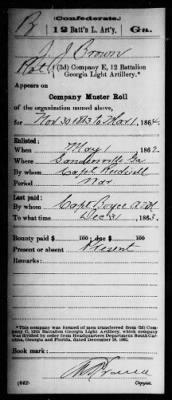 Confederate.
B 12 Batt'n L. Art'y. Ga.
J. J. Brown
(2d) Company E, 12 Battalion
Georgia Light Artillery.*
Appears on
Company Muster Roll
of the organization named above,
for Nov 30 1863 to Mar 1, 1864.
Enlisted:
When May 1, 1862.
Where Sandersville Ga
By whom Capt
Period War
Last paid:
By whom Capt Boyce
To what time Dec 31, 1863.
Bounty paid $ 100; due $ 100
Present or absent Present
Remarks:
*This company was formed of men transferred from (2d) Company C, 12th Battalion Georgia Light Artillery, which company was divided by order from Headquarters Department South Carolina, Georgia and Florida, dated December 19, 1862.
Book mark:
(642) Copyist.